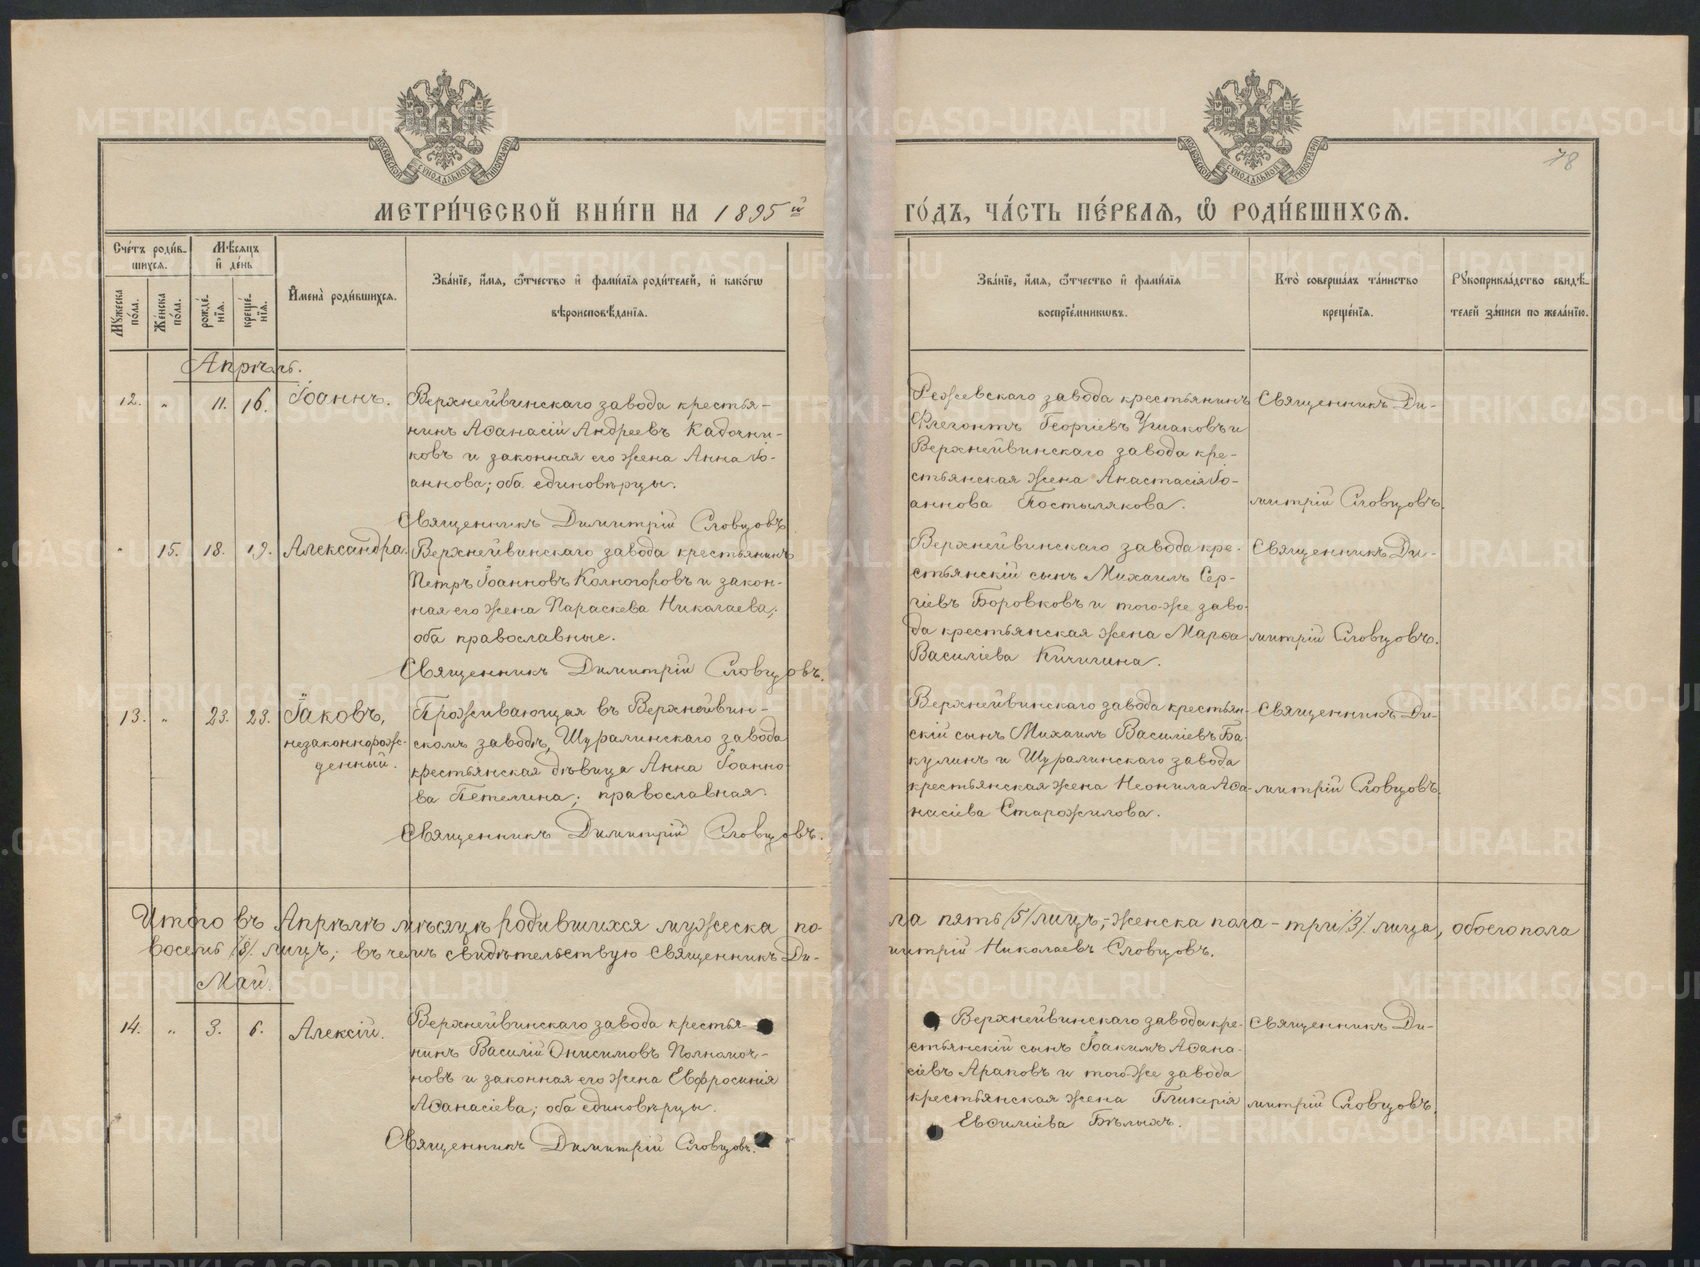 МЕТРИ́ЧЕСКОЙ КНИ́ГИ НА 1895й
ГО́ДЪ, ЧА́СТЬ ПЕ́РВАѦ, Ѡ҆ РОДИ́ВШИХСѦ.
78
Сче́тъ роди́в-
шихсѧ.
Мѣ́сѧцъ
и҆ де́нь
Мꙋ́жеска
по́ла.
Же́нска
по́ла.
рожде́-
нїѧ.
креще́-
нїѧ.
И҆мена̀ роди́вшихсѧ.
Зва́нїе, и҆́мѧ, ѻ҆́тчество и҆ фами́лїѧ роди́телей, и҆ како́гѡ
вѣроисповѣ́данїѧ.
Зва́нїе, и҆́мѧ, ѻ҆́тчество и҆ фами́лїѧ
воспрїе́мникѡвъ.
Кто̀ соверша́лъ та́инство
креще́нїѧ.
Рꙋкоприкла́дство свидѣ́-
телей за́писи по жела́нїю.
Апрѣль.
12. " 11. 16. Іоаннъ.
Верхнейвинскаго завода крестья-
нинъ Аѳанасій Андреевъ Кадочни-
ковъ и законная его жена Анна Іо-
аннова; оба единовѣрцы.
Священникъ Димитрій Словцовъ
Режевскаго завода крестьянинъ
Флегонтъ Георгіевъ Ушаковъ и
Верхнейвинскаго завода кре-
стьянская жена Анастасія Іо-
аннова Постылякова.
Священникъ Ди-
митрій Словцовъ.
" 15. 18. 19. Александра.
Верхнейвинскаго завода крестьянинъ
Петръ Іоанновъ Колногоровъ и закон-
ная его жена Параскева Николаева;
оба православные.
Священникъ Димитрій Словцовъ.
Верхнейвинскаго завода кре-
стьянскій сынъ Михаилъ Сер-
гіевъ Боровковъ и того-же заво-
да крестьянская жена Марѳа
Василіева Кичигина.
Священникъ Ди-
митрій Словцовъ.
13. " 23. 23. Іаковъ,
незаконнорож-
денный.
Проживающая въ Верхнейвин-
скомъ заводѣ, Шуралинскаго завода
крестьянская дѣвица Анна Іоанно-
ва Петелина; православная.
Священникъ Димитрій Словцовъ.
Верхнейвинскаго завода крестьян-
скій сынъ Михаилъ Василіевъ Ба-
кулинъ и Шуралинскаго завода
крестьянская жена Неонила Аѳа-
насіева Старожилова.
Священникъ Ди-
митрій Словцовъ.
Итого въ Апрѣлѣ мѣсяцѣ родившихся мужеска по-
ла пять /5/ лицъ, женска пола – три /3/ лица, обоего пола
восемь /8/ лицъ; въ чемъ свидѣтельствую священникъ Ди-
митрій Николаевъ Словцовъ.
Май.
14. " 3. 6. Алексій.
Верхнейвинскаго завода крестья-
нинъ Василій Онисимовъ Полномоч-
новъ и законная его жена Евфросинія
Аѳанасіева; оба единовѣрцы.
Священникъ Димитрій Словцовъ.
Верхнейвинскаго завода кре-
стьянскій сынъ Іоакимъ Аѳана-
сіевъ Араповъ и того-же завода
крестьянская жена Гликерія
Евѳиміева Бѣлыхъ.
Священникъ Ди-
митрій Словцовъ.